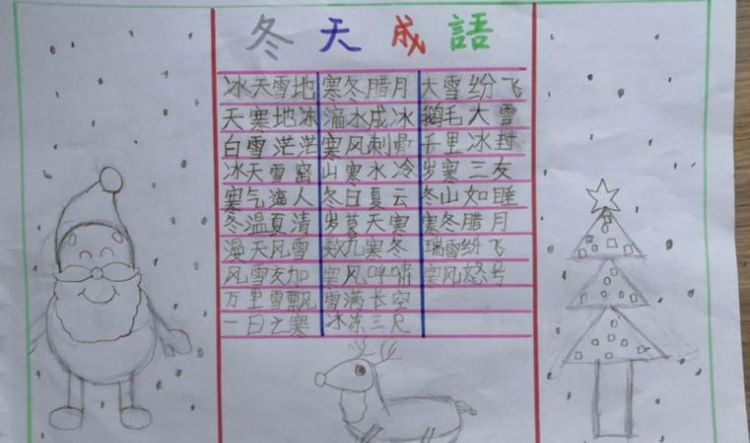 冬天成語
冰天雪地 寒冬腊月 大雪纷飞
天寒地冰 滴水成冰 鹅毛大雪
白雪茫茫 寒风刺骨 千里冰封
冰天雪窖 山寒水冷 岁寒三友
寒气逼人 冬日夏云 冬山如睡
冬温夏清 岁暮天寒 寒冬腊月
漫天风雪 数九寒冬 瑞雪纷飞
风雪交加 寒风呼啸 寒风怒号
万里雪飘 雪满长空
一日之寒 冰冻三尺